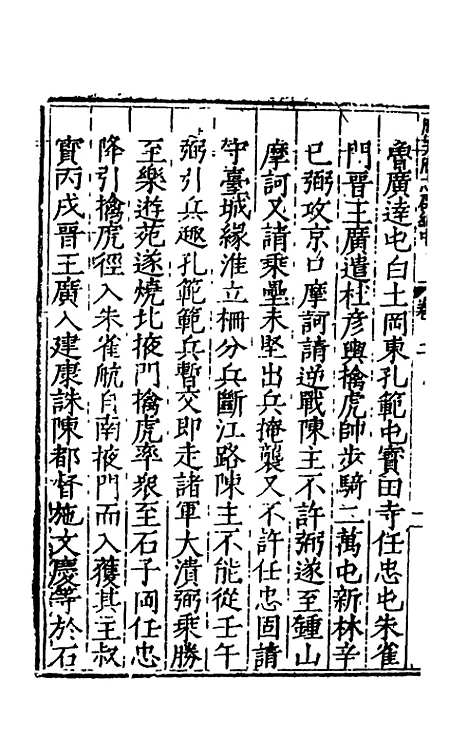 魯廣達屯白土岡東孔範屯寶田寺任忠屯朱雀
門晋王廣遣杜彦與擒虎帥步騎二萬屯新林辛
巳弼攻京口摩訶請逆戰陳主不許弼遂至鍾山
摩訶又請乘壘未堅出兵掩襲又不許任忠固請
守臺城緣淮立柵分兵斷江路陳主不能從壬午
弼引兵趣孔範範兵暫交即走諸軍大潰弼乘勝
至樂遊苑遂燒北掖門擒虎率衆至石子岡任忠
降引擒虎徑入朱雀航自南掖門而入獲其主叔
寶丙戌晋王廣入建康誅陳都督施文慶等於石